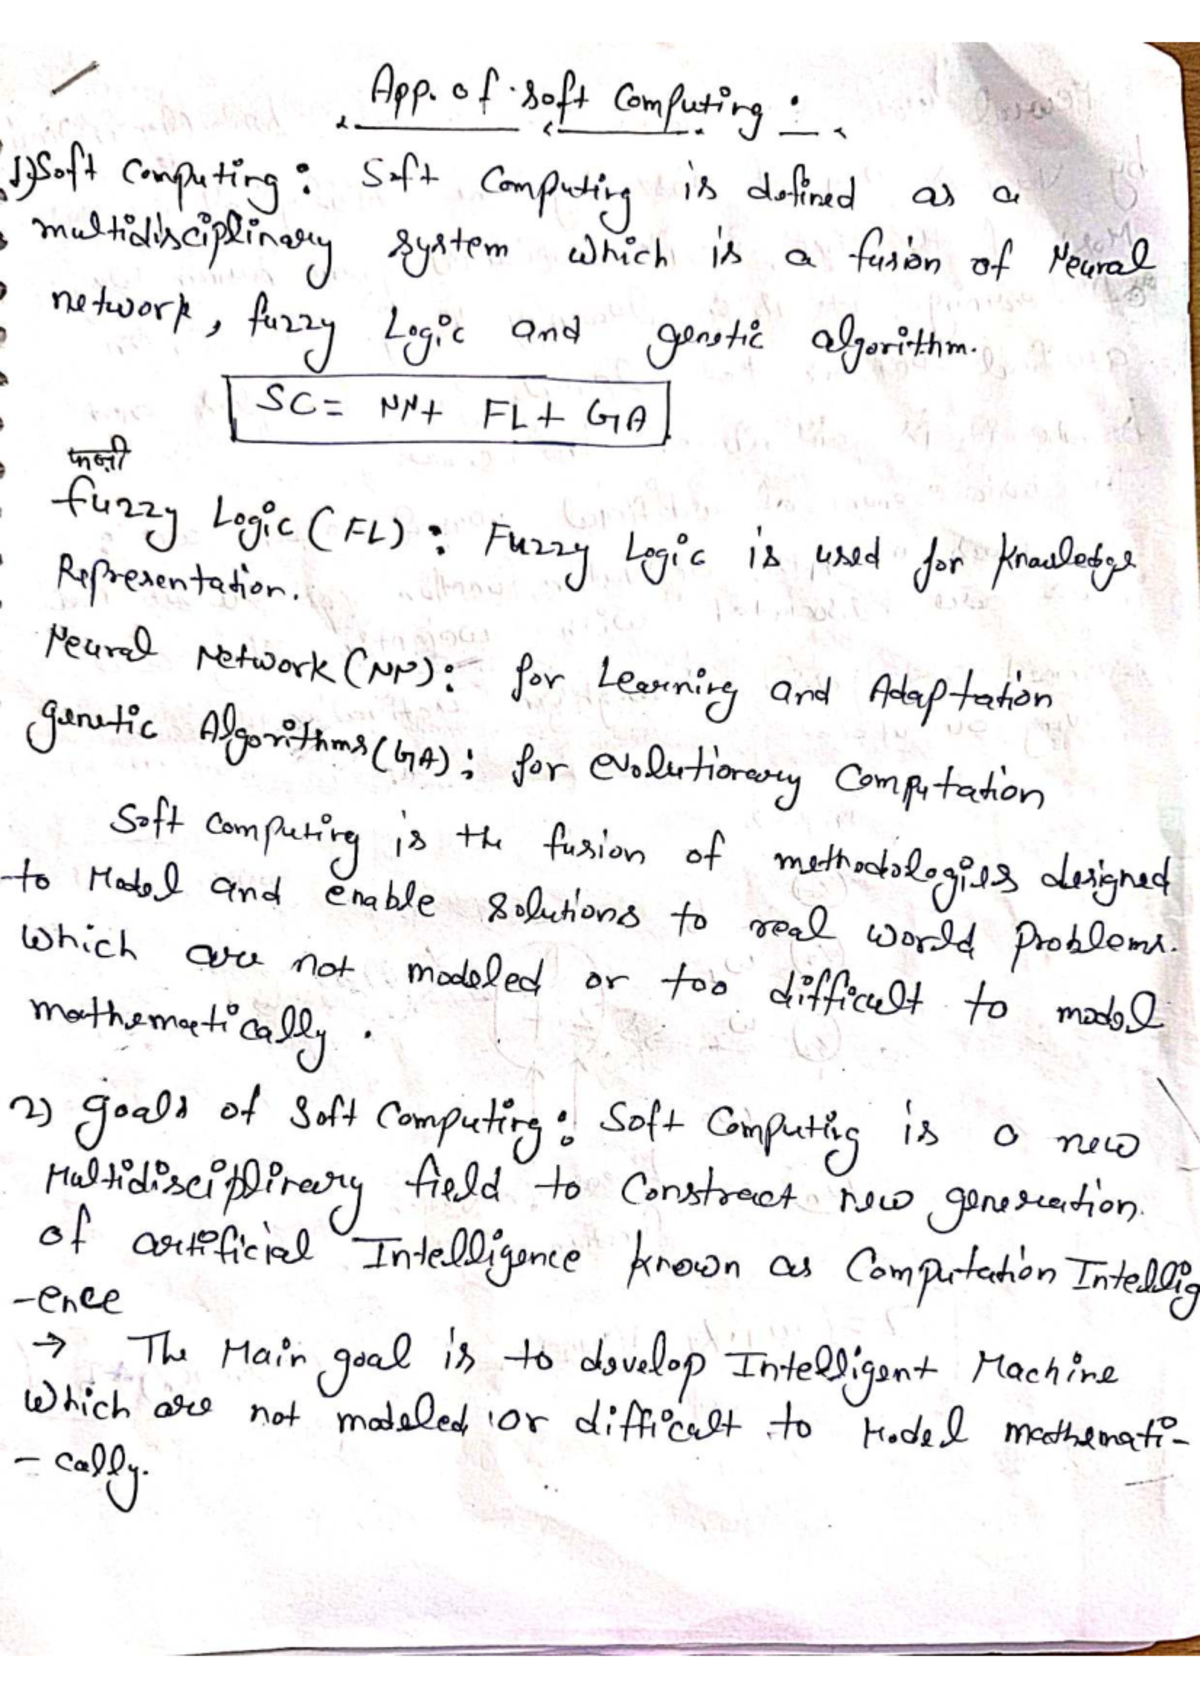 App. of soft Computing :
1) Soft Computing : Soft Computing is defined as a
multidisciplinary system which is a fusion of Neural
network, fuzzy Logic and genetic algorithm.
SC = NN + FL + GA
फजी
fuzzy Logic (FL) : Fuzzy Logic is used for Knowledge
Representation.
Neural Network (NN) : for Learning and Adaptation
genetic Algorithms (GA) : for evolutionary Computation
Soft Computing is the fusion of methodologies designed
to Model and enable solutions to real world problems.
which are not modeled or too difficult to model
mathematically.
2) goals of Soft Computing : Soft Computing is a new
Multidisciplinary field to Construct new generation.
of artificial Intelligence known as Computation Intellig
-ence
→ The Main goal is to develop Intelligent Machine
which are not modeled or difficult to Model mathemati-
- cally.